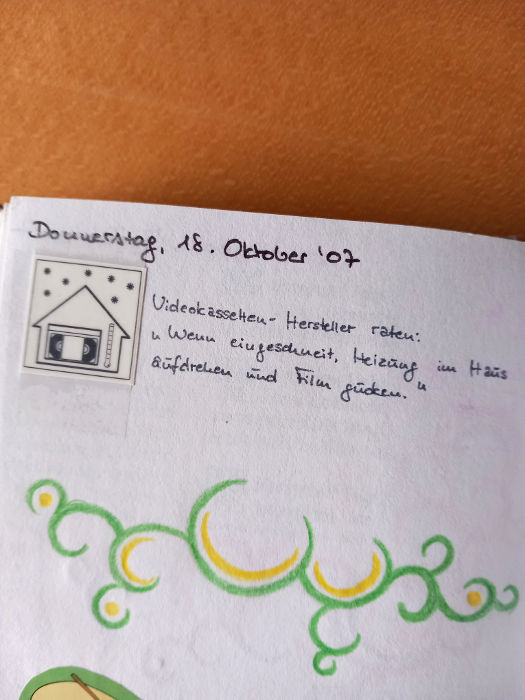 Donnerstag, 18. Oktober '07
Videokassetten-Hersteller raten:
"Wenn eingeschneit, Heizung im Haus
aufdrehen und Film gucken."